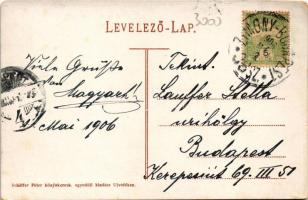 LEVELEZŐ-LAP.
Viele Grüße
von
Magyarh!
Mai 1906
Tekint.
Lauffer Stella
urihölgy
Budapest
Kerepesiút 69. III 51
Schäffer Péter könyvkeresk. egyedüli kiadása Ujvidéken.